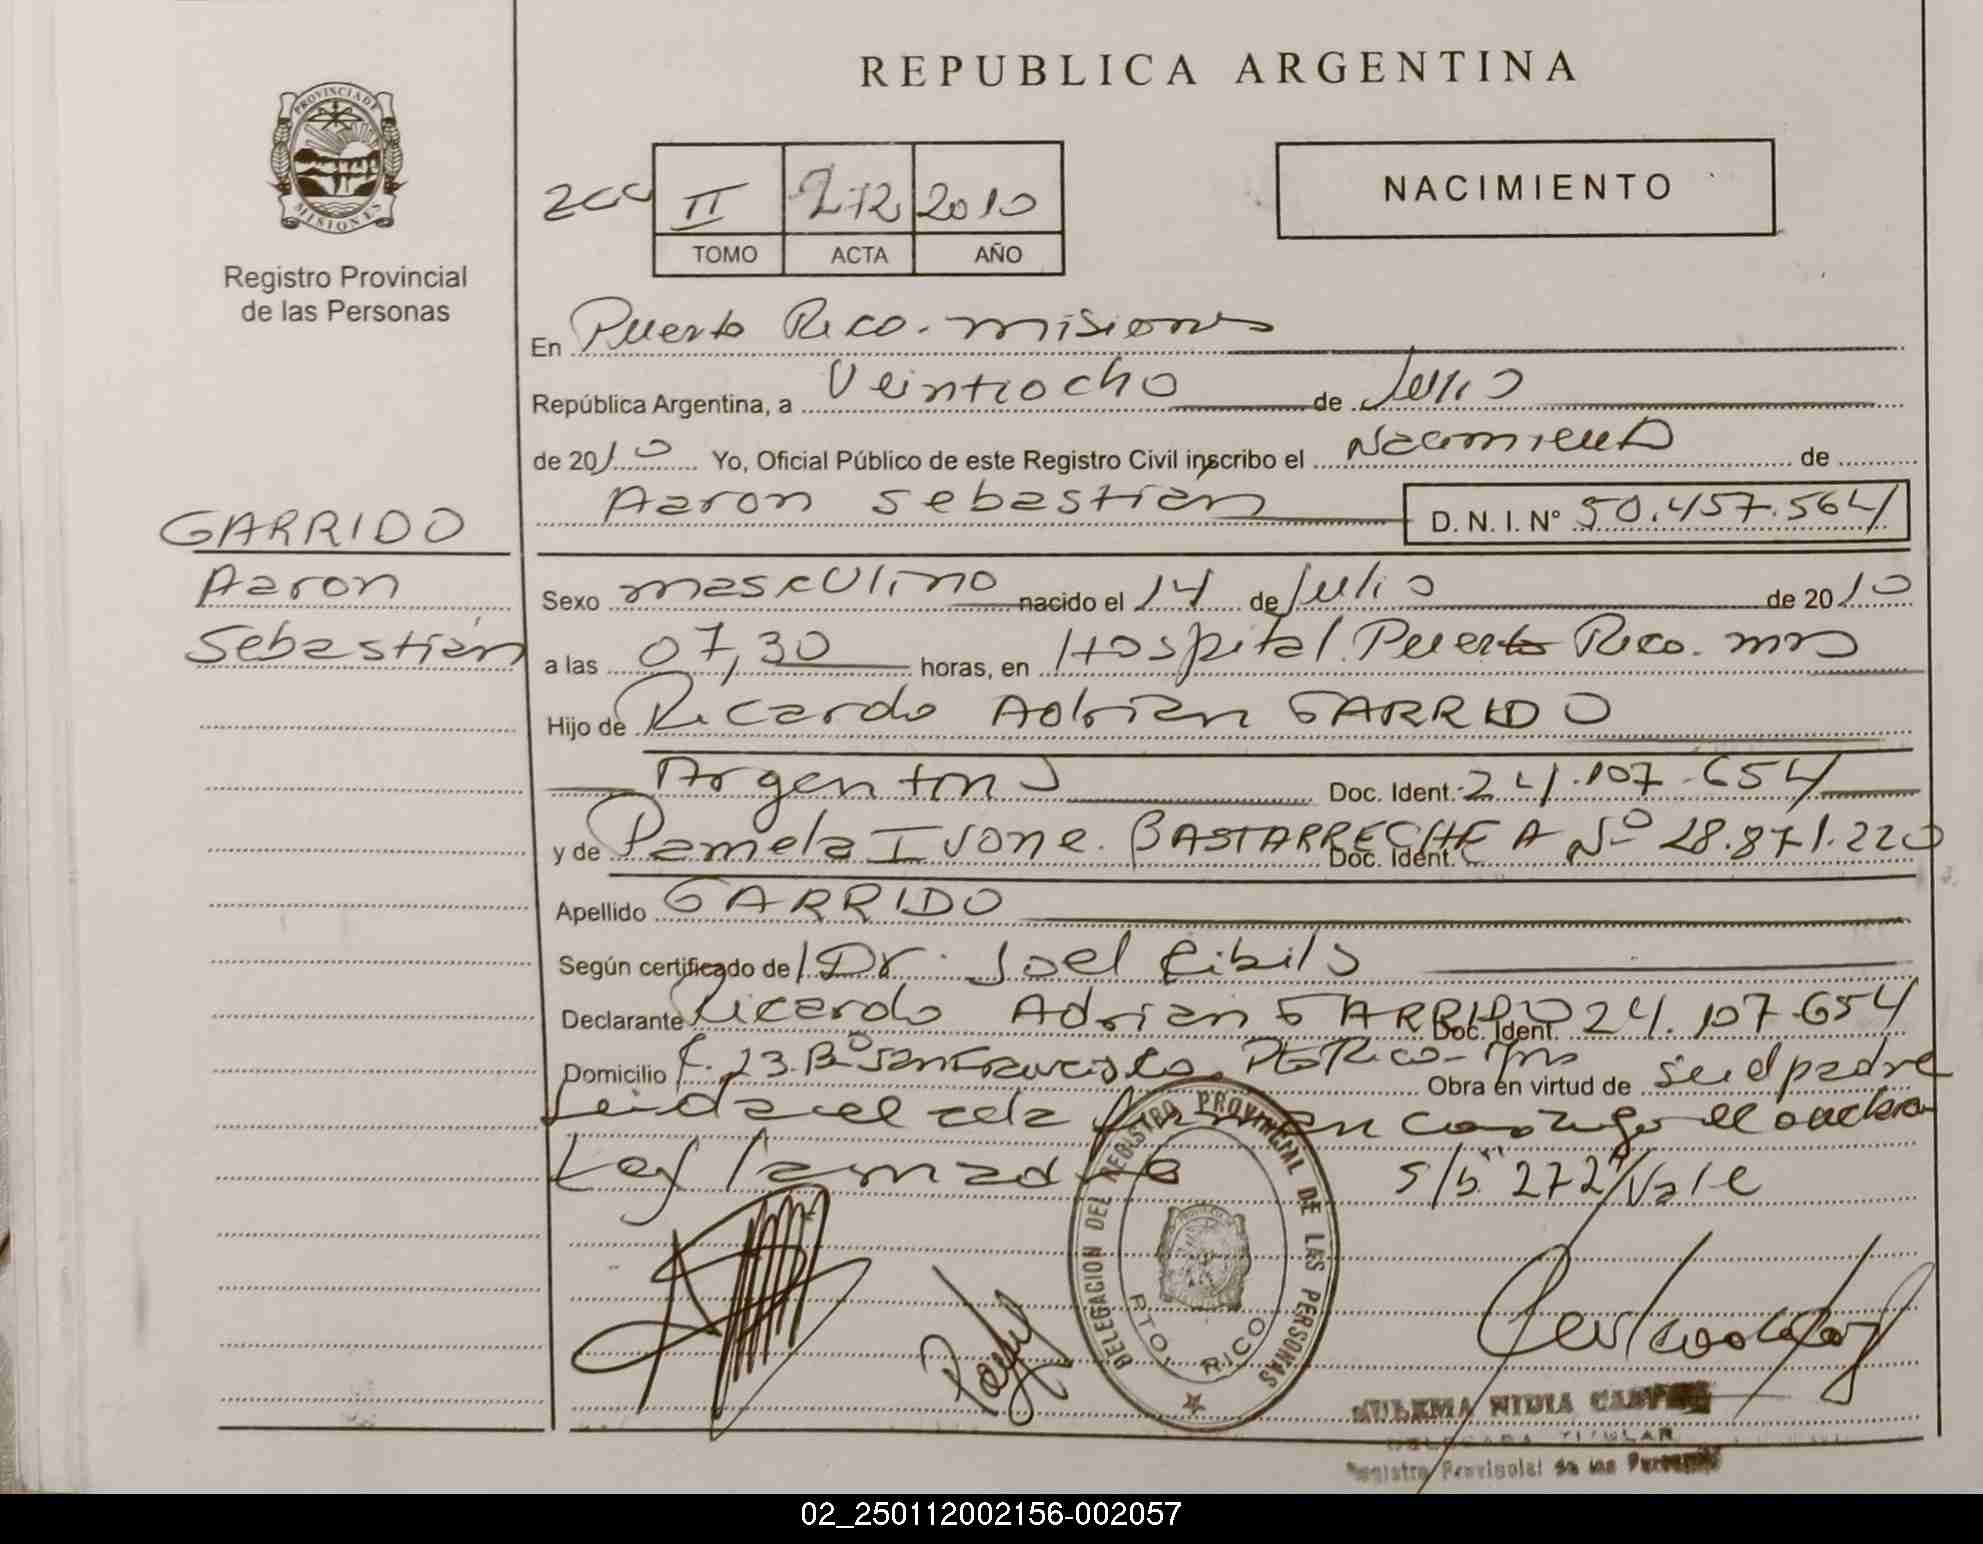 REPUBLICA ARGENTINA
PROVINCIA DE
MISIONES
Registro Provincial
de las Personas
II 272 2010
TOMO ACTA AÑO
NACIMIENTO
En Puerto Rico. misiones
República Argentina, a Veintiocho de Julio
de 2010 Yo, Oficial Público de este Registro Civil inscribo el Nacimiento de
Aaron Sebastián D. N. I. N° 50.457.564
GARRIDO
Aaron
Sebastián
Sexo masculino nacido el 14 de Julio de 2010
a las 07,30 horas, en Hospital. Puerto Rico. mns
Hijo de Ricardo Adrian GARRIDO
Argentino Doc. Ident. 24.107.654
y de Pamela Ivone. BASTARRECHE A Nº 28.871.220
Doc. Ident.
Apellido GARRIDO
Según certificado de Dr. Joel
Declarante Ricardo Adrian GARRIDO Doc. Ident. 24.107.654
Domicilio 23. Bº San Francisco. Pto Rico - Mns Obra en virtud de ser el padre
Leida el acta firman conmigo el
Ley la madre s/b "272" Vale
DELEGACION DEL REGISTRO PROVINCIAL DE LAS PERSONAS
PTO. RICO
NIDIA
DELEGADA TITULAR
Registro Provincial de las Personas
02_250112002156-002057